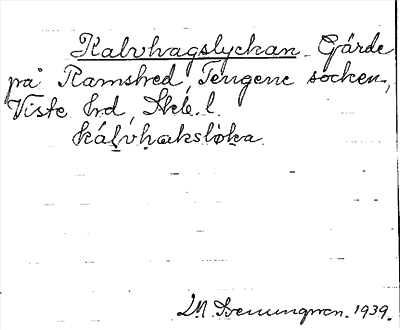 Kalvhagslyckan. Gärde
på Ramshed, Tengene socken,
Viste hrd, Skb. l.
kálvhaksløka.
1939.